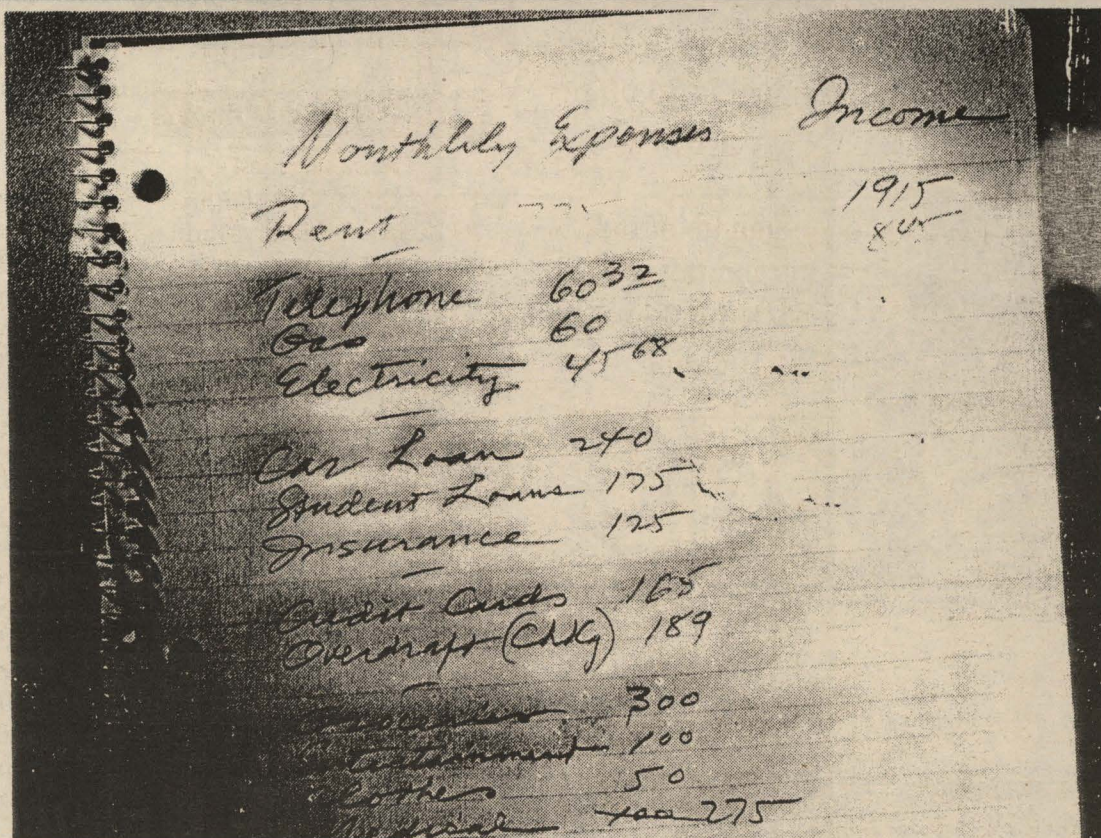 Monthlily Expenses Income
Rent 1915
845
Telephone 60 32
Gas 60
Electricity 45 68
Car Loan 240
Student Loans 175
Insurance 125
Credit Cards 165
Overdraft (Chkg) 189
Groceries 300
Entertainment 100
Clothes 50
Medical 275